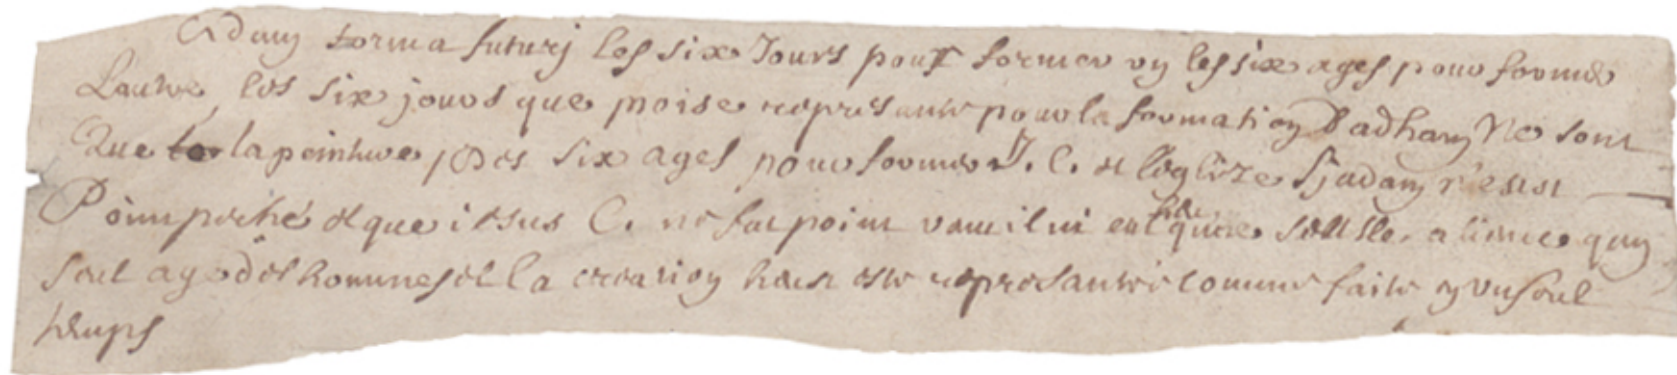 Adam forma futurj les six Jours pour former vn les six ages pour former
Lautre, les six jours que moise represante pour la formation D adham Ne sont
Que la peinture Des six ages pour former J. C. et leglize Sj adam n'eust
Point peché et que iesus C. ne fut point venu il ni eut heu qune seulle aliance qun
seul age des hommes et la creation heust este represantée comme faite en vn seul
temps